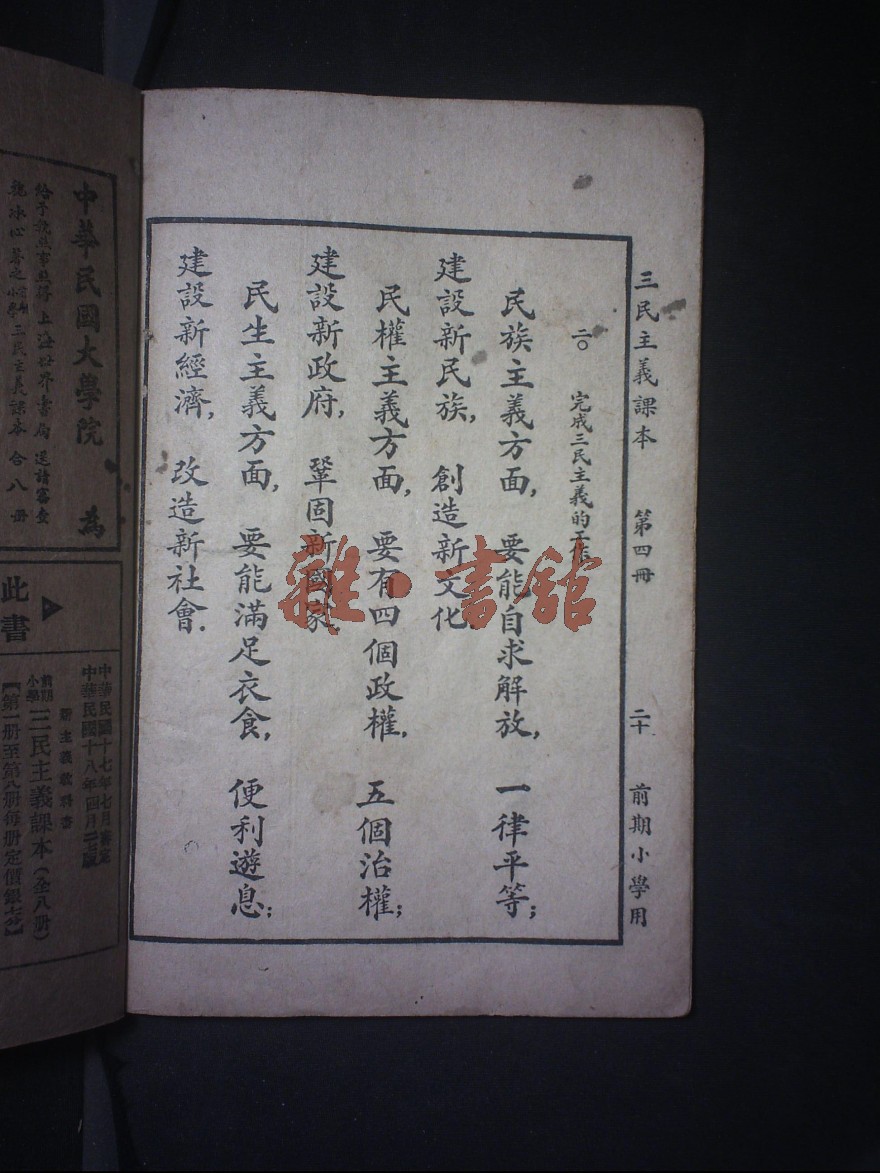 三民主義課本 第四冊 二十 前期小學用
二〇 完成三民主義的工作
民族主義方面, 要能自求解放, 一律平等;
建設新民族, 創造新文化.
民權主義方面, 要有四個政權, 五個治權;
建設新政府, 鞏固新國家.
民生主義方面, 要能滿足衣食, 便利遊息;
建設新經濟, 改造新社會.
雜·書館
中華民國大學院 為
給予執照事茲據上海世界書局送請審查
魏冰心著之前期小學三民主義課本合八冊
此書
中華民國十七年七月審定
中華民國十八年四月版
新主義教科書
前期小學三民主義課本(全八冊)
【第一册至第八册每册定價銀七分】